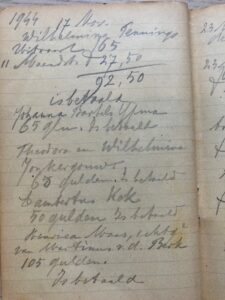 1944 17 Nov.
Wilhelmina Pennings
Uitvaart 65
" Maandst. 27,50
92,50
is betaald
Johanna Bartels Ypma
65 gld. Is betaald
Theodora en Wilhelmina
Jonkergouw
65 gulden. Is betaald
Lambertus Kok
50 gulden Is betaald
Henrica Maas, echtg.
van Martinus v.d. Berk
105 gulden.
Is betaald
23
23